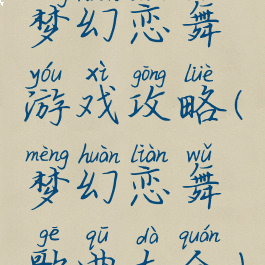 梦幻恋舞
yóu xì gōng lüè
游戏攻略(
mèng huàn liàn wǔ
梦幻恋舞
gē qū dà quán
歌曲大全)